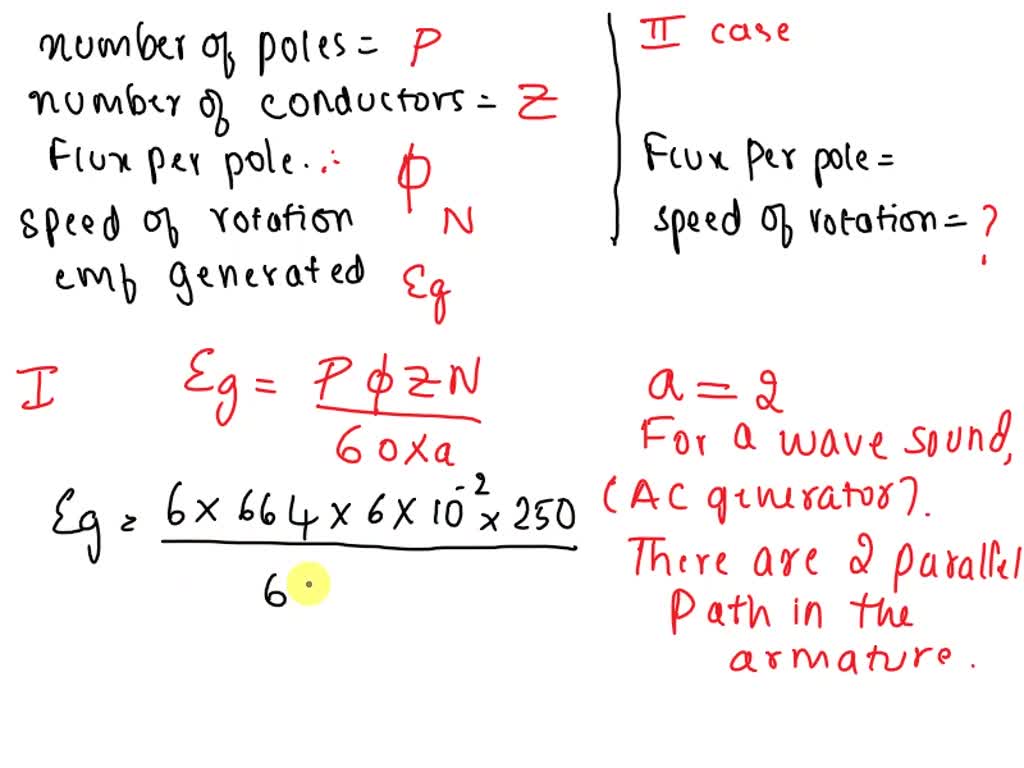 number of poles = P
number of conductors = Z
Flux per pole ∴ ϕ
speed of rotation N
emf generated Eg
II case
Flux per pole =
speed of rotation = ?
I Eg = PϕZN / 60×a
Eg = 6 × 664 × 6 × 10⁻² × 250 / 6
a = 2
For a wave sound,
(AC generator).
There are 2 parallel
Path in the
armature.